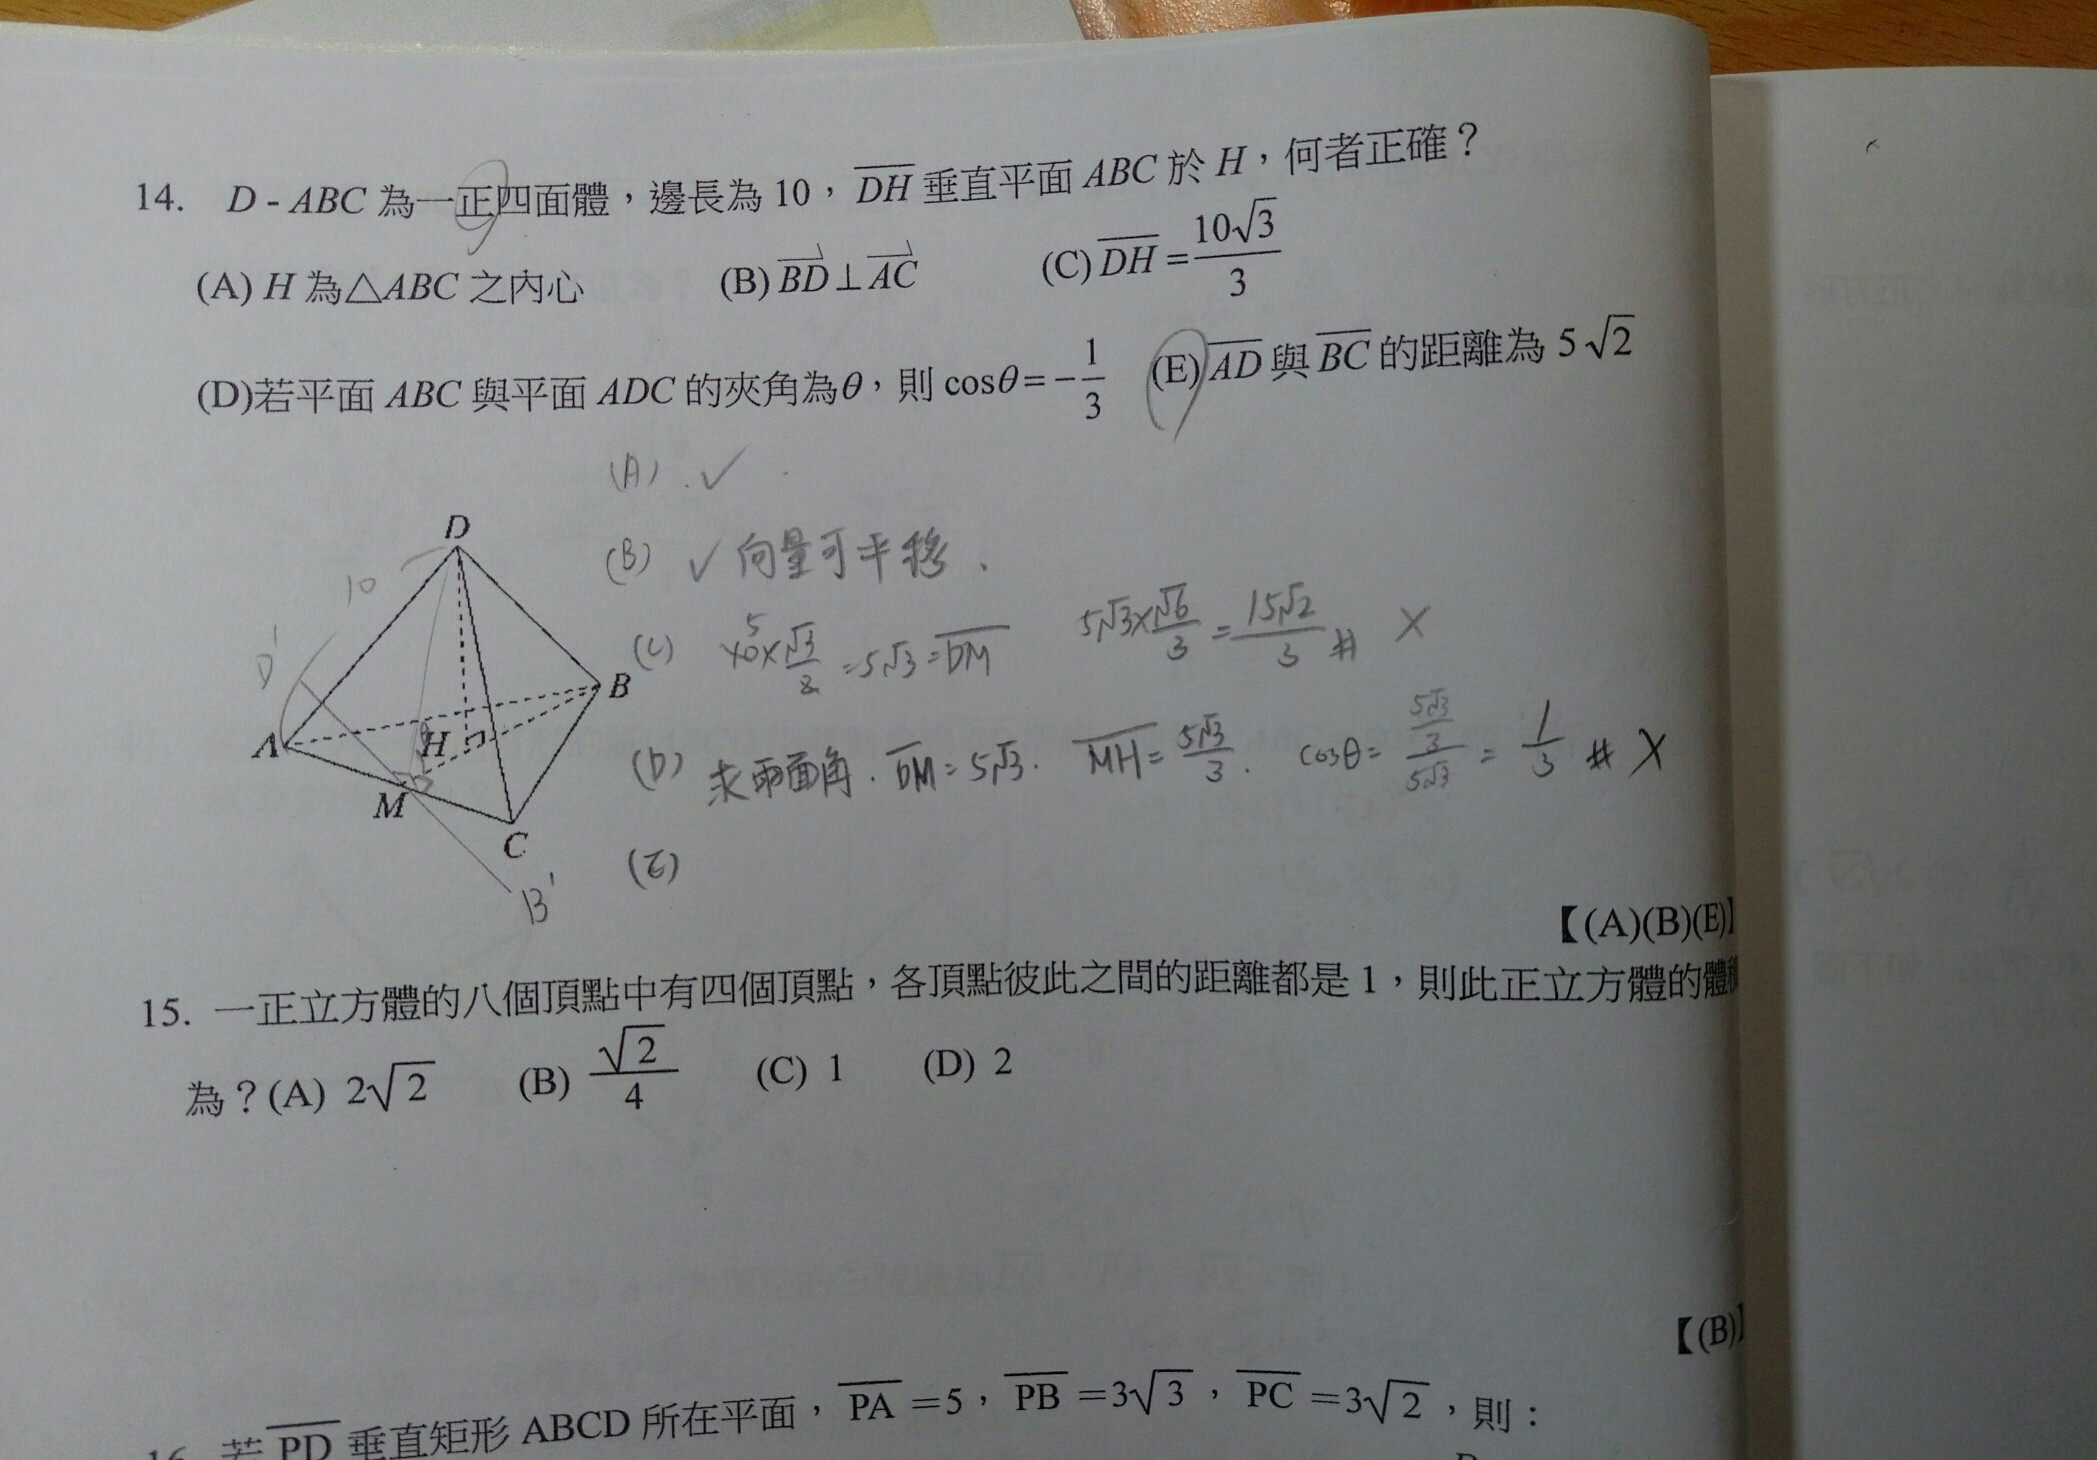 14. D - ABC 為一正四面體，邊長為 10，DH 垂直平面 ABC 於 H，何者正確？
(A) H 為△ABC 之內心 (B) BD⊥AC (C) DH = 10√3/3
(D)若平面 ABC 與平面 ADC 的夾角為θ，則 cosθ = -1/3 (E) AD 與 BC 的距離為 5√2
(A) . ✓
(B) ✓ 向量可平移、
(C) 10×√3/2 = 5√3 = DM 5√3×√6/3 = 15√2/3 # ×
(D) 求兩面角. DM = 5√3. MH = 5√3/3. cosθ = (5√3/3)/(5√3) = 1/3 # ×
(E)
D
10
D'
A
B
H
M
C
B'
【(A)(B)(E)】
15. 一正立方體的八個頂點中有四個頂點，各頂點彼此之間的距離都是 1，則此正立方體的體積
為？(A) 2√2 (B) √2/4 (C) 1 (D) 2
【(B)】
16. 若 PD 垂直矩形 ABCD 所在平面，PA = 5，PB = 3√3，PC = 3√2，則：